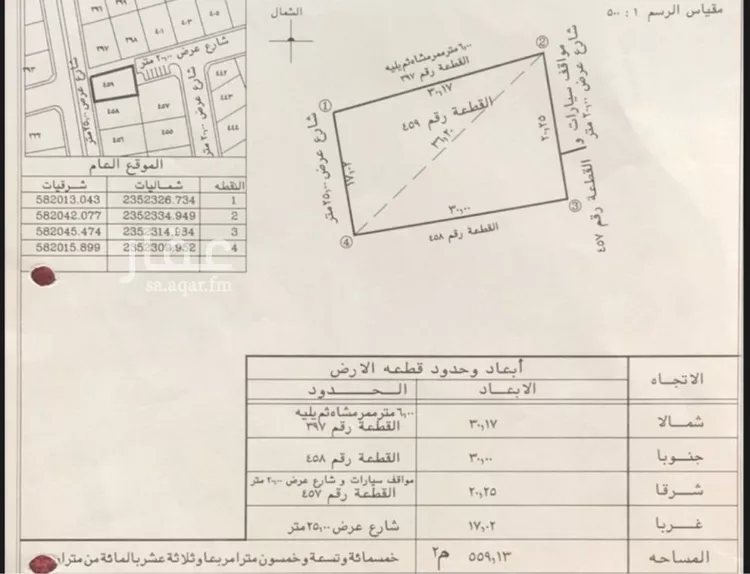 مقياس الرسم ١ : ٥٠٠
الشمال
٣٩٦
٣٩٧
٣٩٨
٤٠١
٤٠٢
شارع عرض ٢٠,٠٠ متر
٣٩٣
٤٥٩
٤٤٢
٤٥٨
٤٥٧
٤٤٣
٤٥٦
٤٥٥
٤٤٤
شارع عرض ٢٥,٠٠ متر
شارع عرض ٢٠,٠٠ متر
الموقع العام
النقطه شماليات شرقيات
1 2352326.734 582013.043
2 2352334.949 582042.077
3 2352314.934 582045.474
4 2352309.952 582015.899
٦,٠٠ متر ممر مشاه ثم يليه
القطعة رقم ٣٩٧
٣٠,١٧
القطعة رقم ٤٥٩
٣٦,٢٠
شارع عرض ٢٥,٠٠ متر
١٧,٠٢
٢٠,٢٥
مواقف سيارات و شارع عرض ٢٠,٠٠ متر
القطعة رقم ٤٥٧
٣٠,٠٠
القطعة رقم ٤٥٨
①
②
③
④
عقار
sa.aqar.fm
الاتجاه أبعاد وحدود قطعه الارض
الابعاد الحدود
شمالا ٣٠,١٧ ٦,٠٠ متر ممر مشاه ثم يليه
القطعة رقم ٣٩٧
جنوبا ٣٠,٠٠ القطعة رقم ٤٥٨
شرقا ٢٠,٢٥ مواقف سيارات و شارع عرض ٢٠,٠٠ متر
القطعة رقم ٤٥٧
غربا ١٧,٠٢ شارع عرض ٢٥,٠٠ متر
المساحه ٥٥٩,١٣ م٢ خمسمائة وتسعة وخمسون مترا مربعا وثلاثة عشر بالمائة من مترا